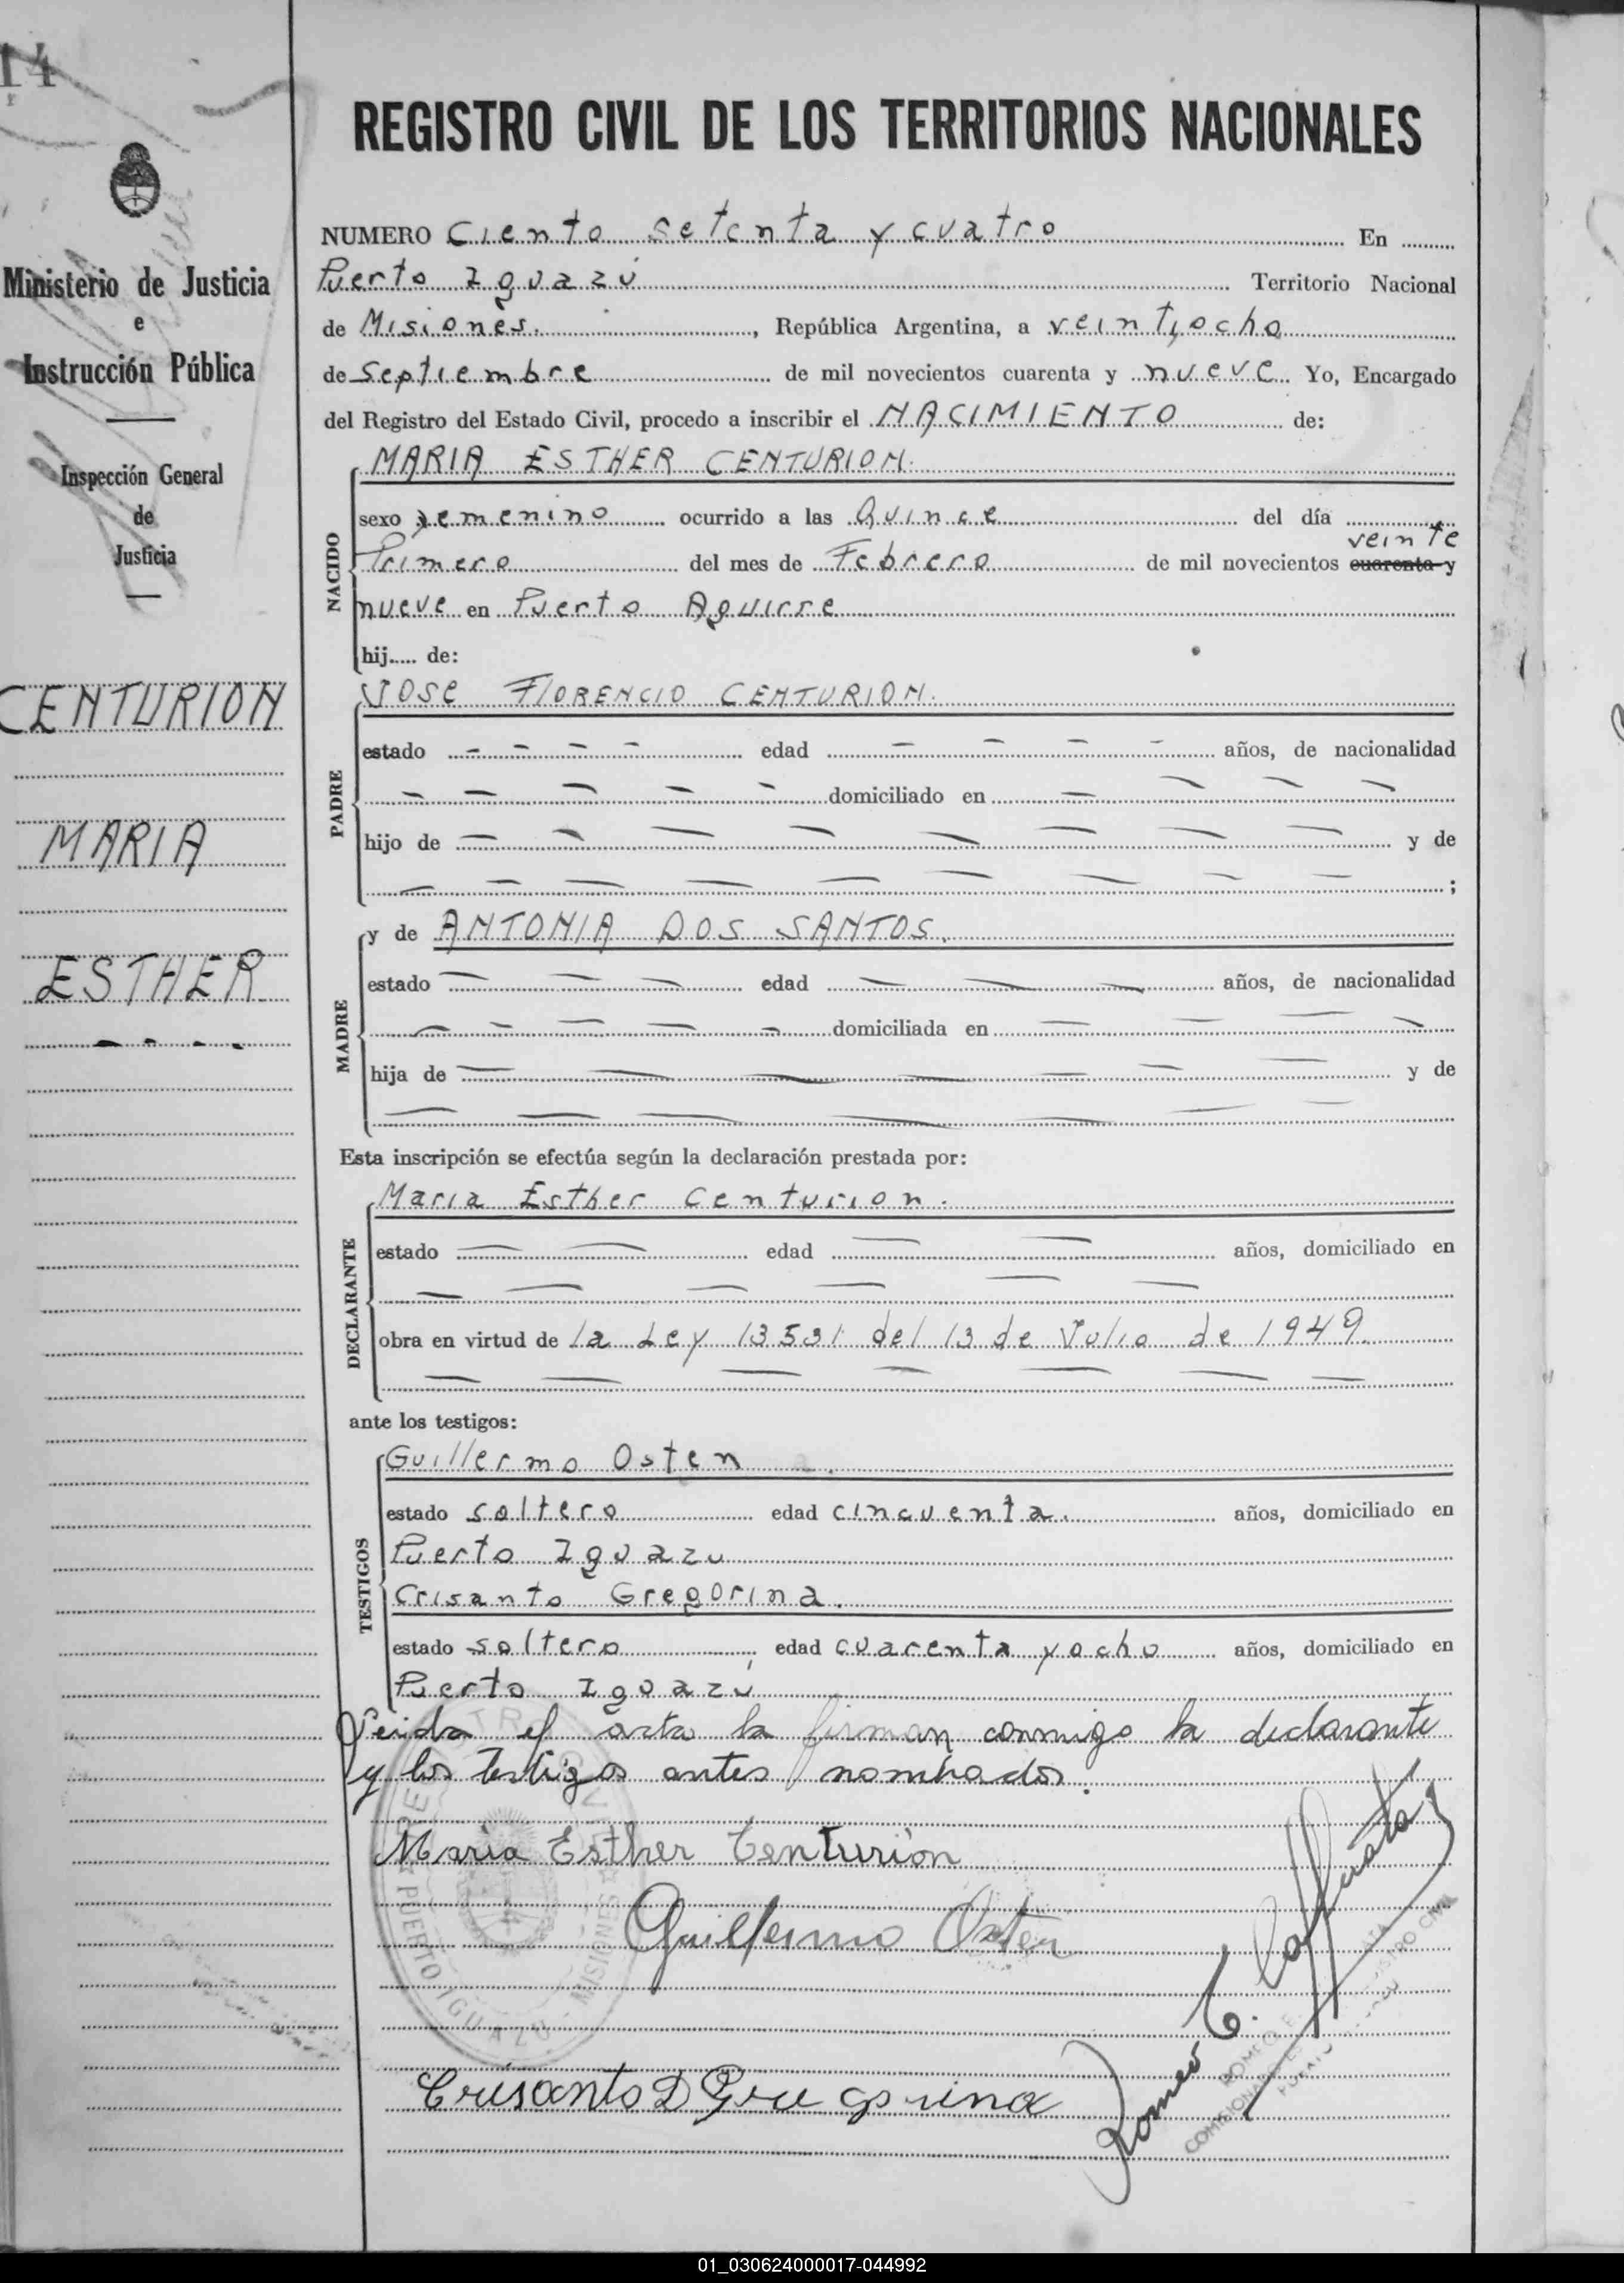 14
REGISTRO CIVIL DE LOS TERRITORIOS NACIONALES
Ministerio de Justicia
e
Instrucción Pública
Inspección General
de
Justicia
CENTURION
MARIA
ESTHER
NUMERO Ciento setenta y cuatro En
Puerto Iguazú Territorio Nacional
de Misiones, República Argentina, a veintiocho
de Septiembre de mil novecientos cuarenta y nueve Yo, Encargado
del Registro del Estado Civil, procedo a inscribir el NACIMIENTO de:
NACIDO
MARIA ESTHER CENTURION.
sexo femenino ocurrido a las Quince del día
veinte
Primero del mes de Febrero de mil novecientos cuarenta y
nueve en Puerto Aguirre
hij..... de:
PADRE
JOSE FLORENCIO CENTURION.
estado - - - - edad - - - - años, de nacionalidad
- - - - - domiciliado en - - - -
hijo de - - - - - - - - y de
- - - - - - - - - ;
MADRE
y de ANTONIA DOS SANTOS.
estado - - - edad - - - años, de nacionalidad
- - - - - domiciliada en - - - -
hija de - - - - - - - y de
- - - - - - -
Esta inscripción se efectúa según la declaración prestada por:
DECLARANTE
Maria Esther Centurion.
estado - - edad - - años, domiciliado en
- - - - - -
obra en virtud de la Ley 13531 del 13 de Julio de 1949
- - - - - - -
ante los testigos:
TESTIGOS
Guillermo Osten
estado soltero edad cincuenta. años, domiciliado en
Puerto Iguazu
Crisanto Gregorina.
estado soltero, edad cuarenta y ocho años, domiciliado en
Puerto Iguazú
Leida el acta la firman conmigo la declarante
y los testigos antes nombrados.
Maria Esther Centurión
Guillermo Osten
Crisanto D Gregorina
Romeo E.
REGISTRO CIVIL
PUERTO IGUAZU - MISIONES
ROMEO E.
01_030624000017-044992